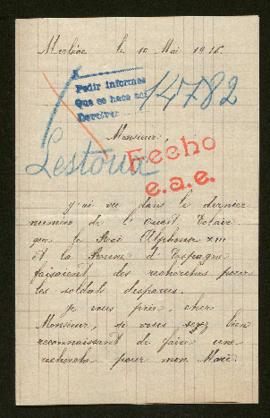 Merléac le 10 Mai 1916
Pedir informes
Que se hace
Devolver
14782
Monsieur,
Lestova
Fecho
e.a.e.
j'ai vu dans le dernier
numéro de l'Ouest Eclair
que le Roi Alphonse XIII
et la Reine d'Espagne
faisaient des recherches pour
les soldats disparus.
Je vous prie, cher
Monsieur, si vous soyez bien
reconnaissant de faire une
recherche pour mon Mari